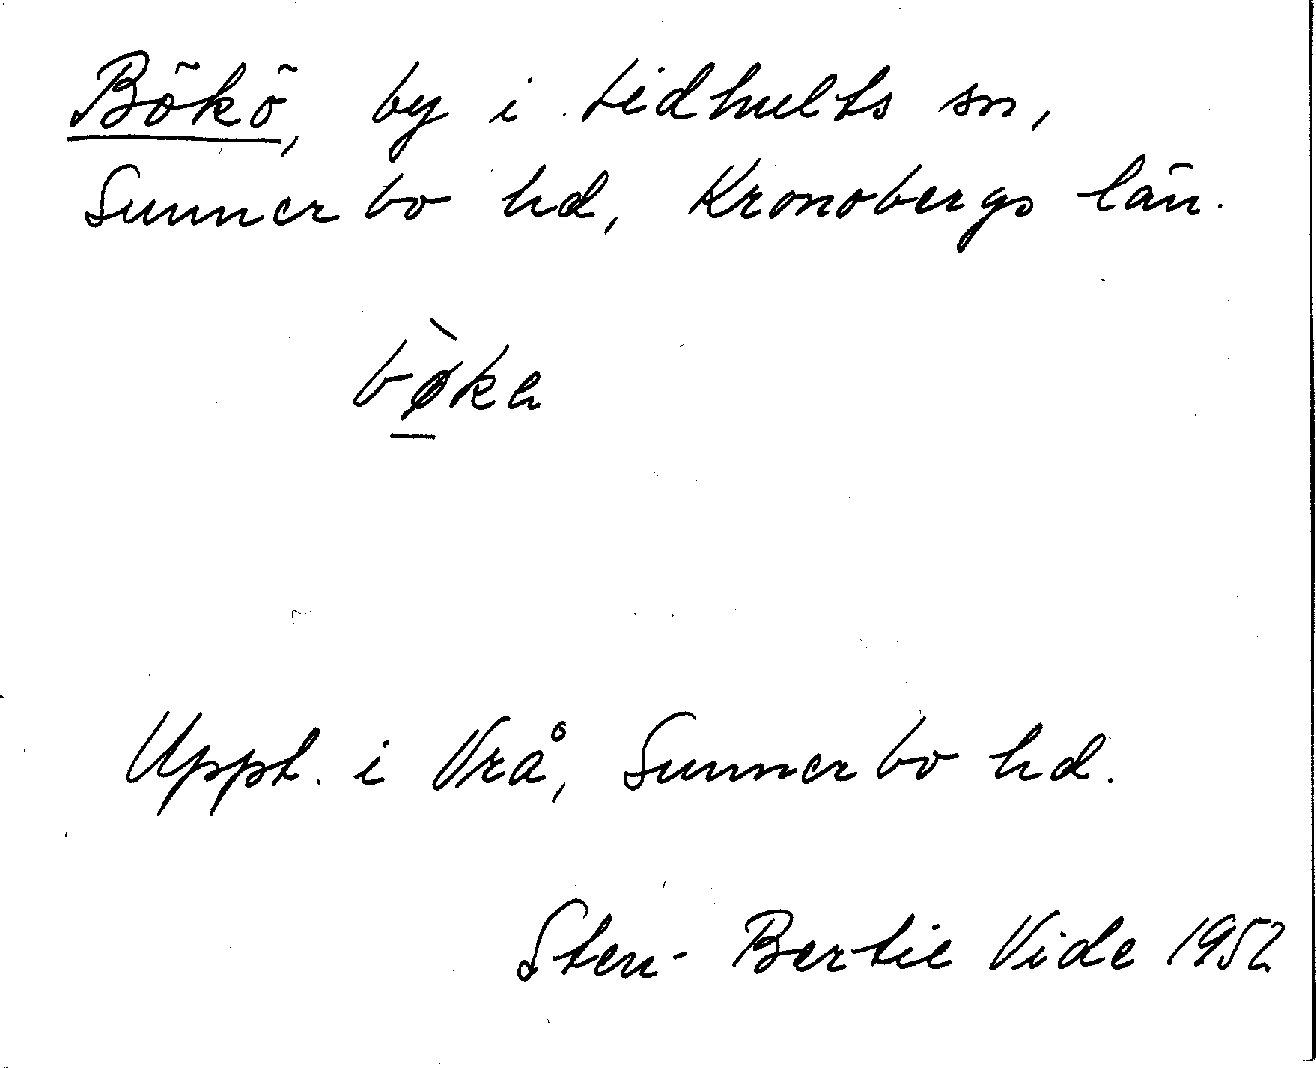 Bökö, by i Lidhults sn,
Sunnerbo hd, Kronobergs län.
bø̀ka
Uppt. i Vrå, Sunnerbo hd.
Sten-Bertil Vide 1952